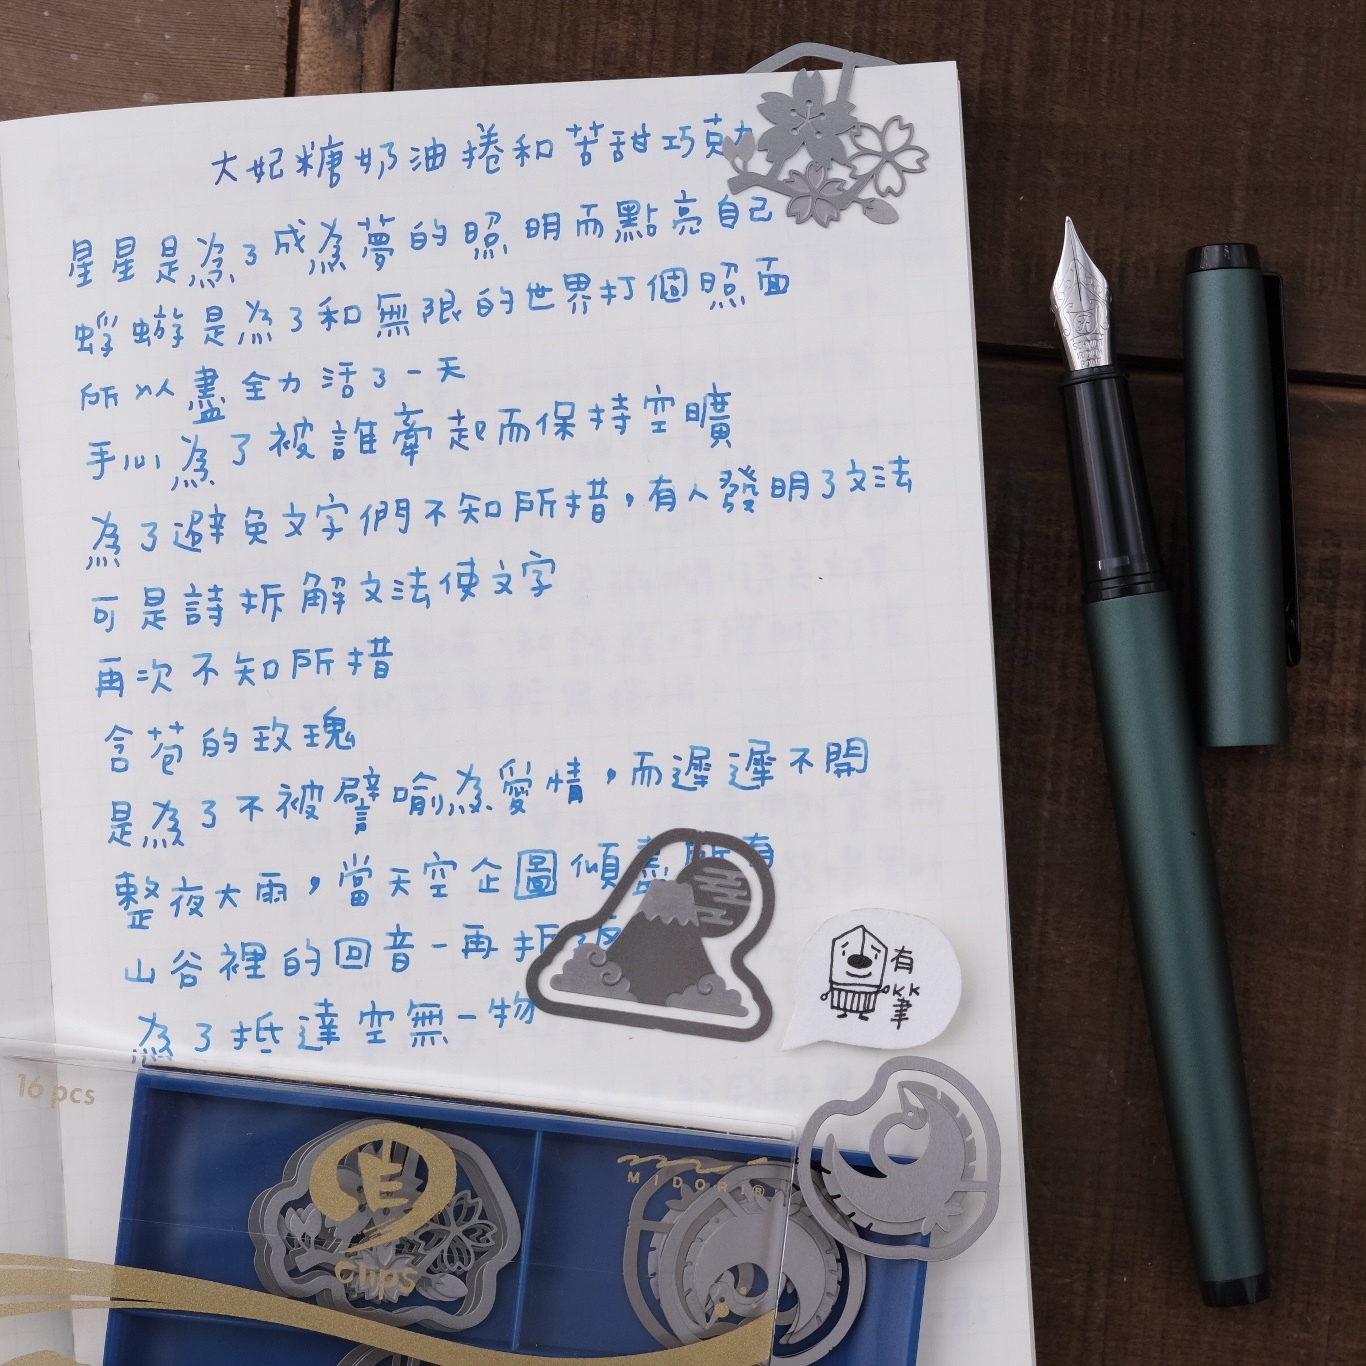 大妃糖奶油捲和苦甜巧克力
星星是為了成為夢的照明而點亮自己
蜉蝣是為了和無限的世界打個照面
所以盡全力活了一天
手心為了被誰牽起而保持空曠
為了避免文字們不知所措，有人發明了文法
可是詩拆解文法使文字
再次不知所措
含苞的玫瑰
是為了不被譬喻為愛情，而遲遲不開
整夜大雨，當天空企圖傾盡所有
山谷裡的回音一再折返
為了抵達空無一物
有
KK
筆
16 pcs
MIDORI®
Clips